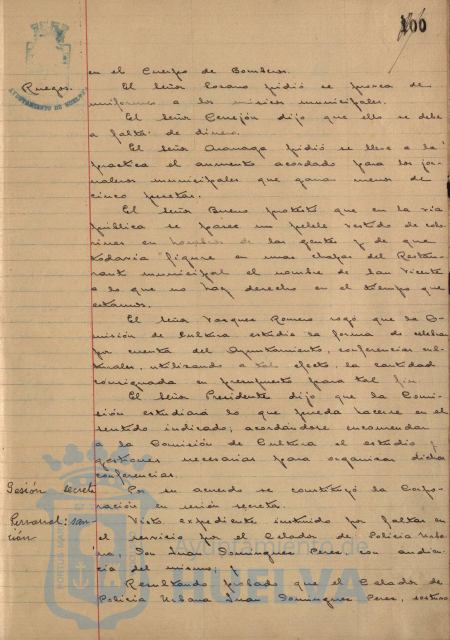 100
en el Cuerpo de Bomberos.
Ruegos. El Señor Lozano pidió se provea de
uniformes a los músicos municipales.
El Señor Cerejón dijo que ello se debe
a falta de dinero.
El Señor pidió se lleve a la
práctica el aumento acordado para los jor-
naleros municipales que ganan menos de
cinco pesetas.
El Señor Bueno protestó que en la vía
pública se pasee un pelele vestido de colo-
rines en de las gentes y de que
todavía figure en unas chapas del Restau-
rante municipal el nombre de San Vicente
a lo que no hay derecho en el tiempo que
estamos.
El Señor Vazquez Romero rogó que la Co-
misión de Cultura estudie la forma de celebrar
por cuenta del Ayuntamiento, conferencias cul-
turales, utilizando a tal efecto, la cantidad
consignada en presupuesto para tal fin.
El Señor Presidente dijo que la Comi-
sión estudiará lo que pueda hacerse en el
sentido indicado, acordándose encomendar
a la Comisión de Cultura el estudio y
gestiones necesarias para organizar dichas
conferencias.
Sesión secreta Por su acuerdo se constituyó la Corpo-
ración en sesión secreta.
Personal: san- Visto expediente instruido por faltas en
ción el servicio por el Celador de Policía Urba-
na, Don Juan Dominguez Perez con audien-
cia del mismo; y
Resultando probado que el Celador de
Policía Urbana Juan Dominguez Perez, sostuvo
AYUNTAMIENTO DE HUELVA
Ayuntamiento de
HUELVA